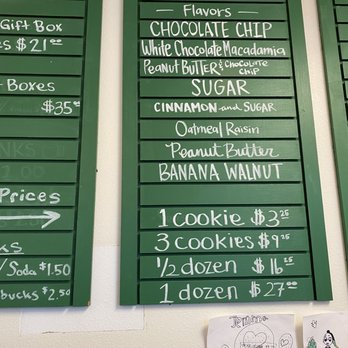 Gift Box
es $21.00
Boxes
$35.00
Prices
ks
/ Soda $1.50
bucks $2.50
Flavors
CHOCOLATE CHIP
White Chocolate Macadamia
PEANUT BUTTER & chocolate chip
SUGAR
CINNAMON and SUGAR
Oatmeal Raisin
Peanut Butter
BANANA WALNUT
1 cookie $3.25
3 cookies $9.25
1/2 dozen $16.25
1 dozen $27.00